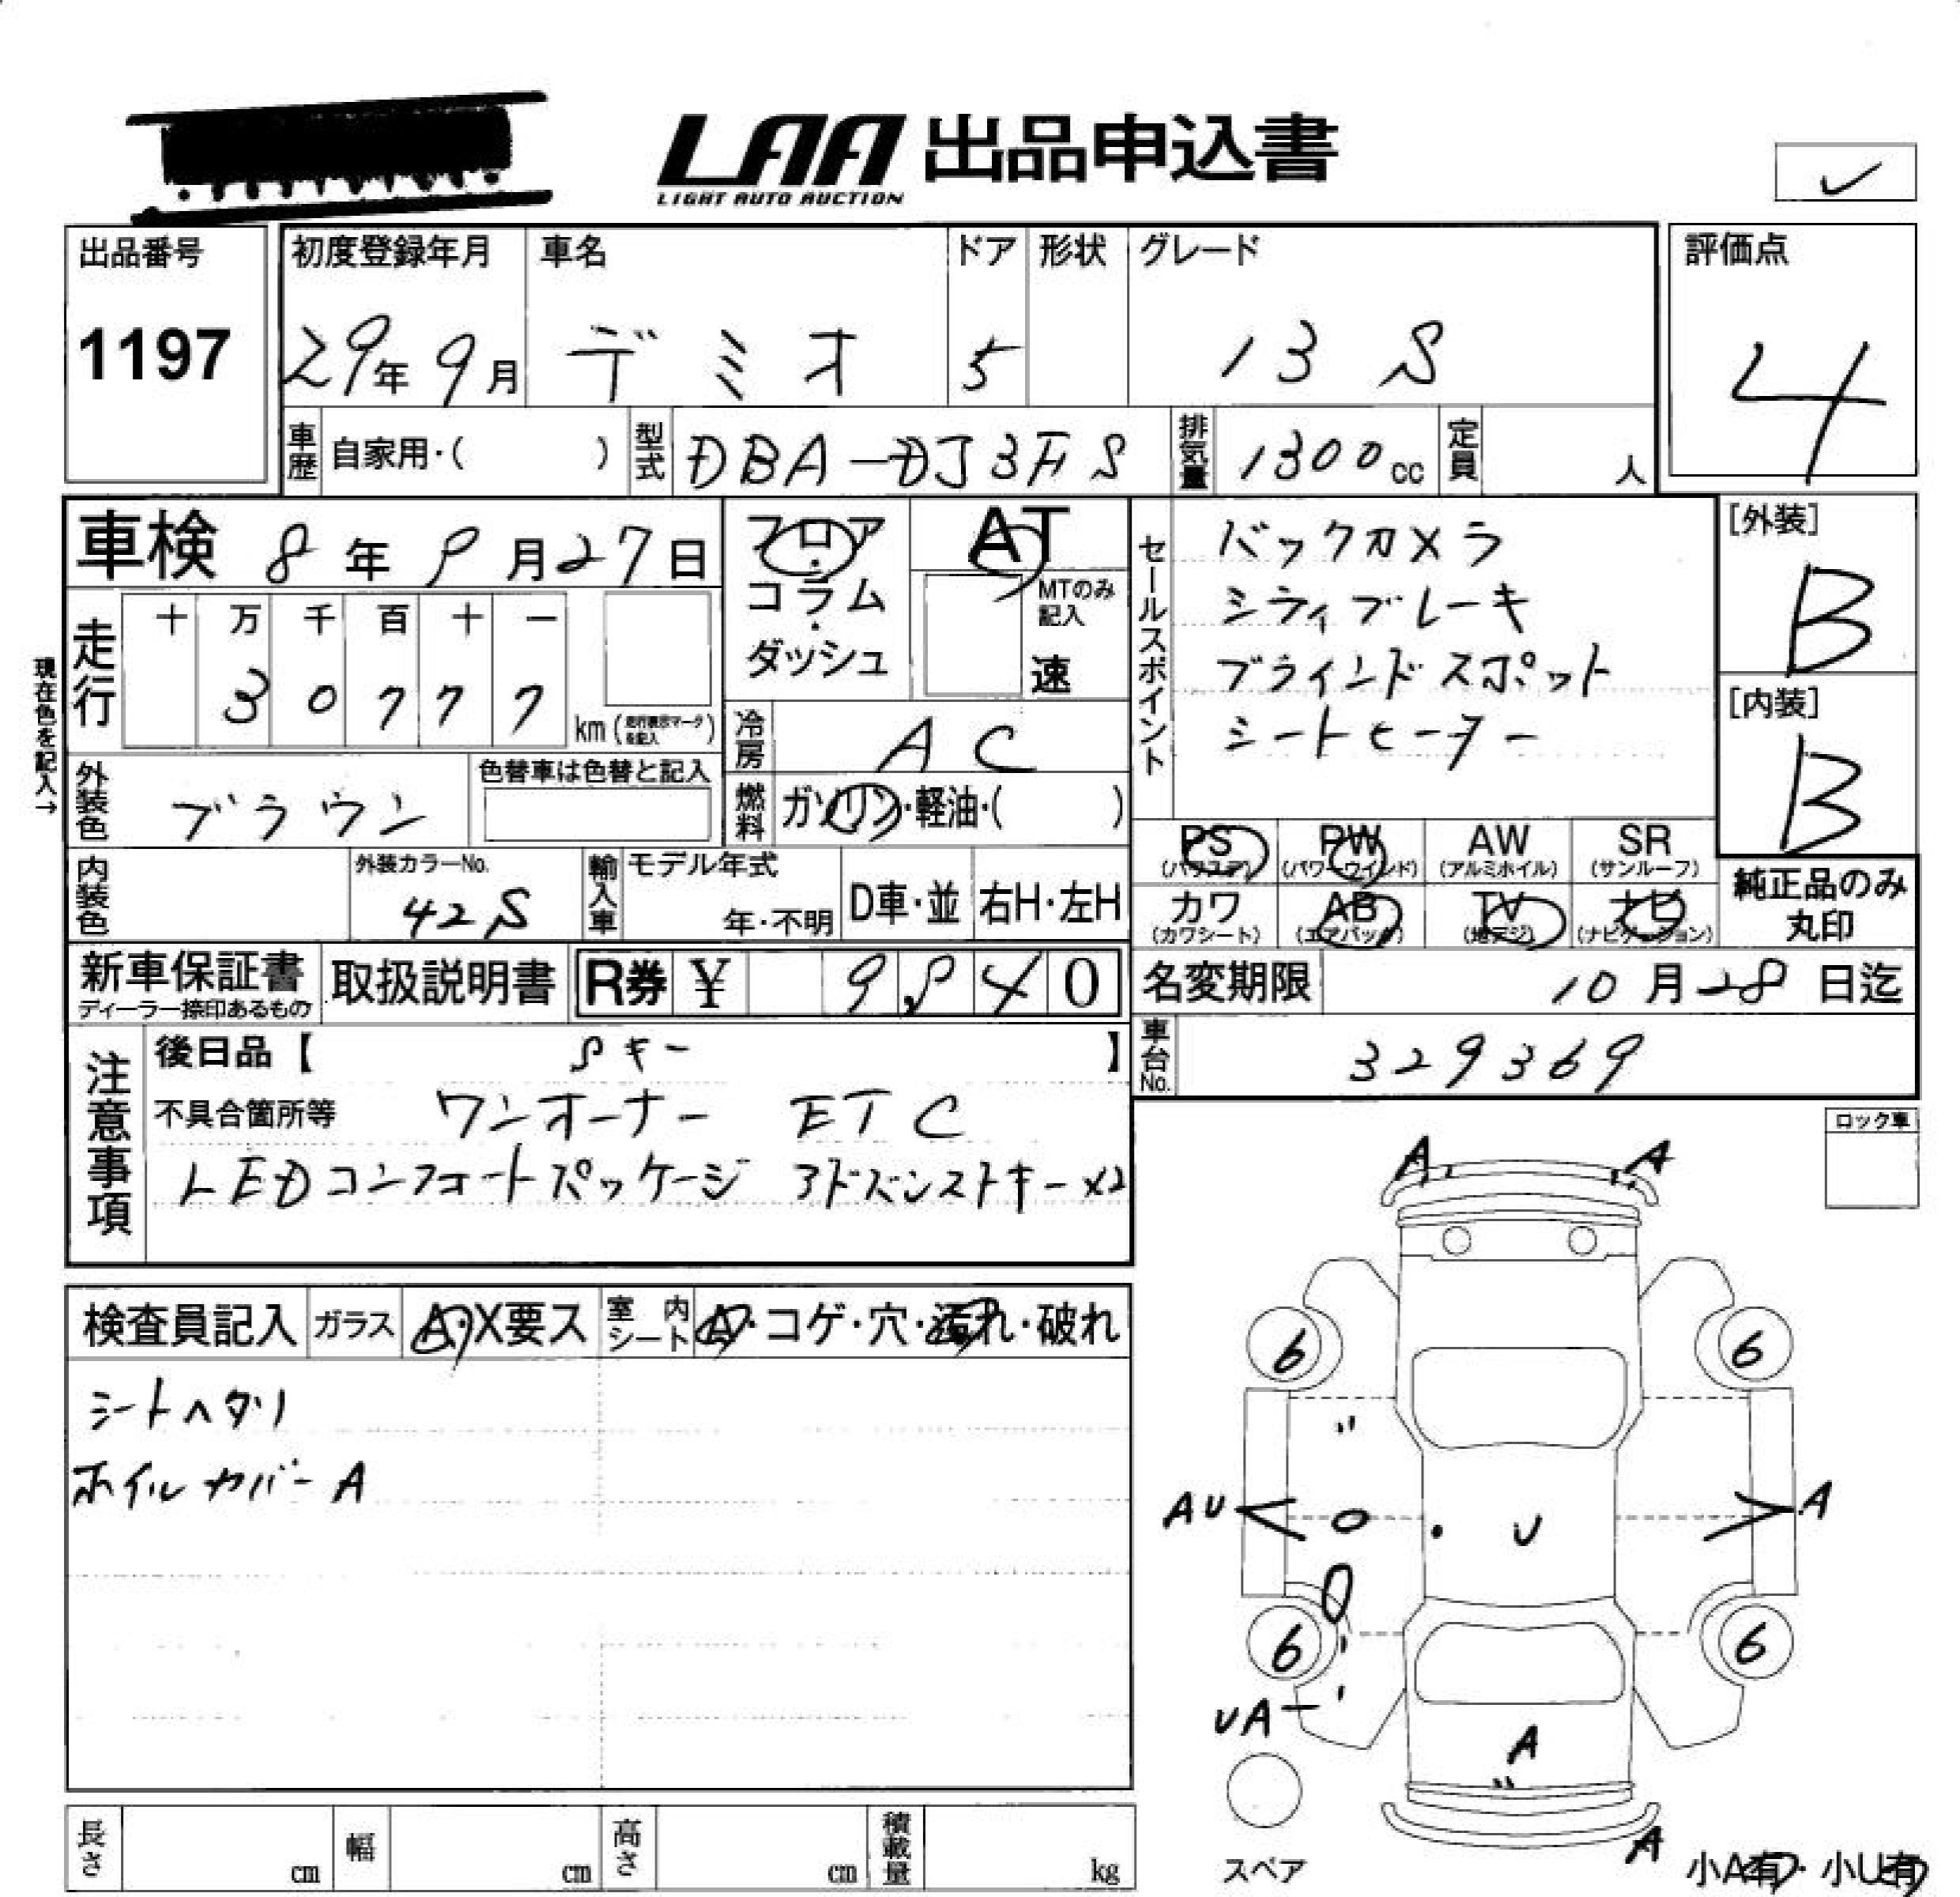 LAA 出品申込書
LIGHT AUTO AUCTION
✓
出品番号
1197
初度登録年月 車名 ドア 形状 グレード
29年 9月 デミオ 5 13 S
評価点
4
車歴 自家用・( ) 型式 DBA-DJ3FS 排気量 1300cc 定員 人
車検 8年 9月27日
フロア・コラム・ダッシュ
AT
MTのみ記入
速
セールスポイント
バックカメラ
シティブレーキ
ブラインドスポット
シートヒーター
[外装]
B
[内装]
B
現在色を記入→
走行
十 万 千 百 十 一
3 0 7 7 7 km (走行表示マークを記入)
冷房 AC
外装色 ブラウン
色替車は色替と記入
燃料 ガソリン・軽油・( )
内装色
外装カラーNo.
42S
輸入車 モデル年式
年・不明
D車・並 右H・左H
PS (パワステ) PW (パワーウインド) AW (アルミホイル) SR (サンルーフ)
カワ (カワシート) AB (エアバック) TV (地デジ) ナビ (ナビゲーション)
純正品のみ丸印
新車保証書
ディーラー捺印あるもの
取扱説明書
R券 ¥ 9,840
名変期限 10月28日迄
車台No. 329369
注意事項
後日品【 Sキー 】
不具合箇所等 ワンオーナー ETC
LEDコンフォートパッケージ アドバンストキー×2
ロック車
検査員記入 ガラス A・X要ス 室内シート A・コゲ・穴・濡れ・破れ
シートヘタリ
ホイルカバーA
A A
6 6
AU U A
6 6
UA
A
A
スペア
小A有・小U有
長さ cm 幅 cm 高さ cm 積載量 kg